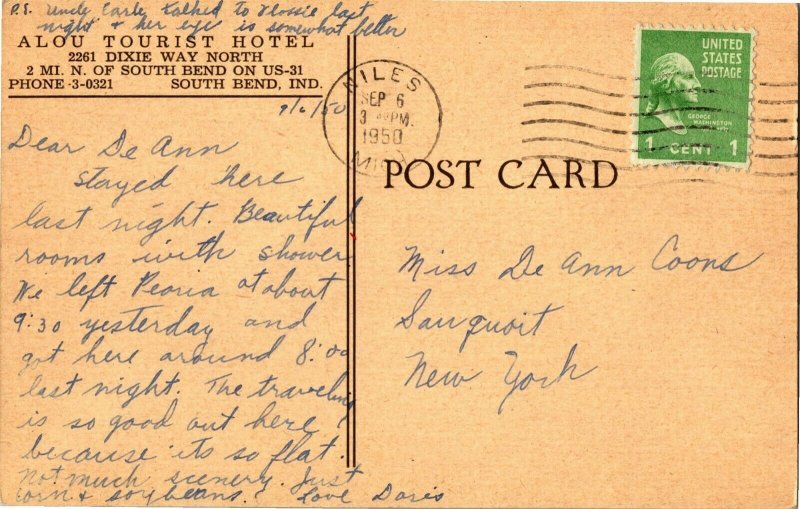 P.S. Uncle Earle talked to Flossie last
night & her eye is somewhat better
ALOU TOURIST HOTEL
2261 DIXIE WAY NORTH
2 MI. N. OF SOUTH BEND ON US-31
PHONE 3-0321 SOUTH BEND, IND.
9/6/50
Dear De Ann
Stayed here
last night. Beautiful
rooms with shower
We left Peoria at about
9:30 yesterday and
got here around 8:00
last night. The traveling
is so good out here
because its so flat.
Not much scenery. Just
corn & soybeans. Love Doris
NILES
SEP 6
3 PM.
1950
MICH
UNITED
STATES
POSTAGE
GEORGE
WASHINGTON
1 CENT 1
POST CARD
Miss De Ann Coons
Sauquoit
New York